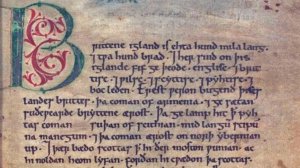 Brittene igland is ehta hund mila lang.
⁊ tƿa hund brad. ⁊ her sind on þis
iglande fif geþeode. englisc. ⁊ brit
tisc. ⁊ ƿilsc. ⁊ scyttisc. ⁊ pyhtisc. ⁊
boc leden. Erest ƿeron bugend þises
landes brittes. þa coman of armenia. ⁊ gesætan
suðeƿearde bryttene ærost. Þa gelamp hit þ̄ pyh
tas coman suþan of scithian. mid langū scipū
na manegum. ⁊ þa coman ærost on norþ ybernian
up. ⁊ þær bædo scottas þ̄ hi ðer moston ƿunian. ac
hi noldan heom lyfan. forðan hi cƿædon þa scottas.